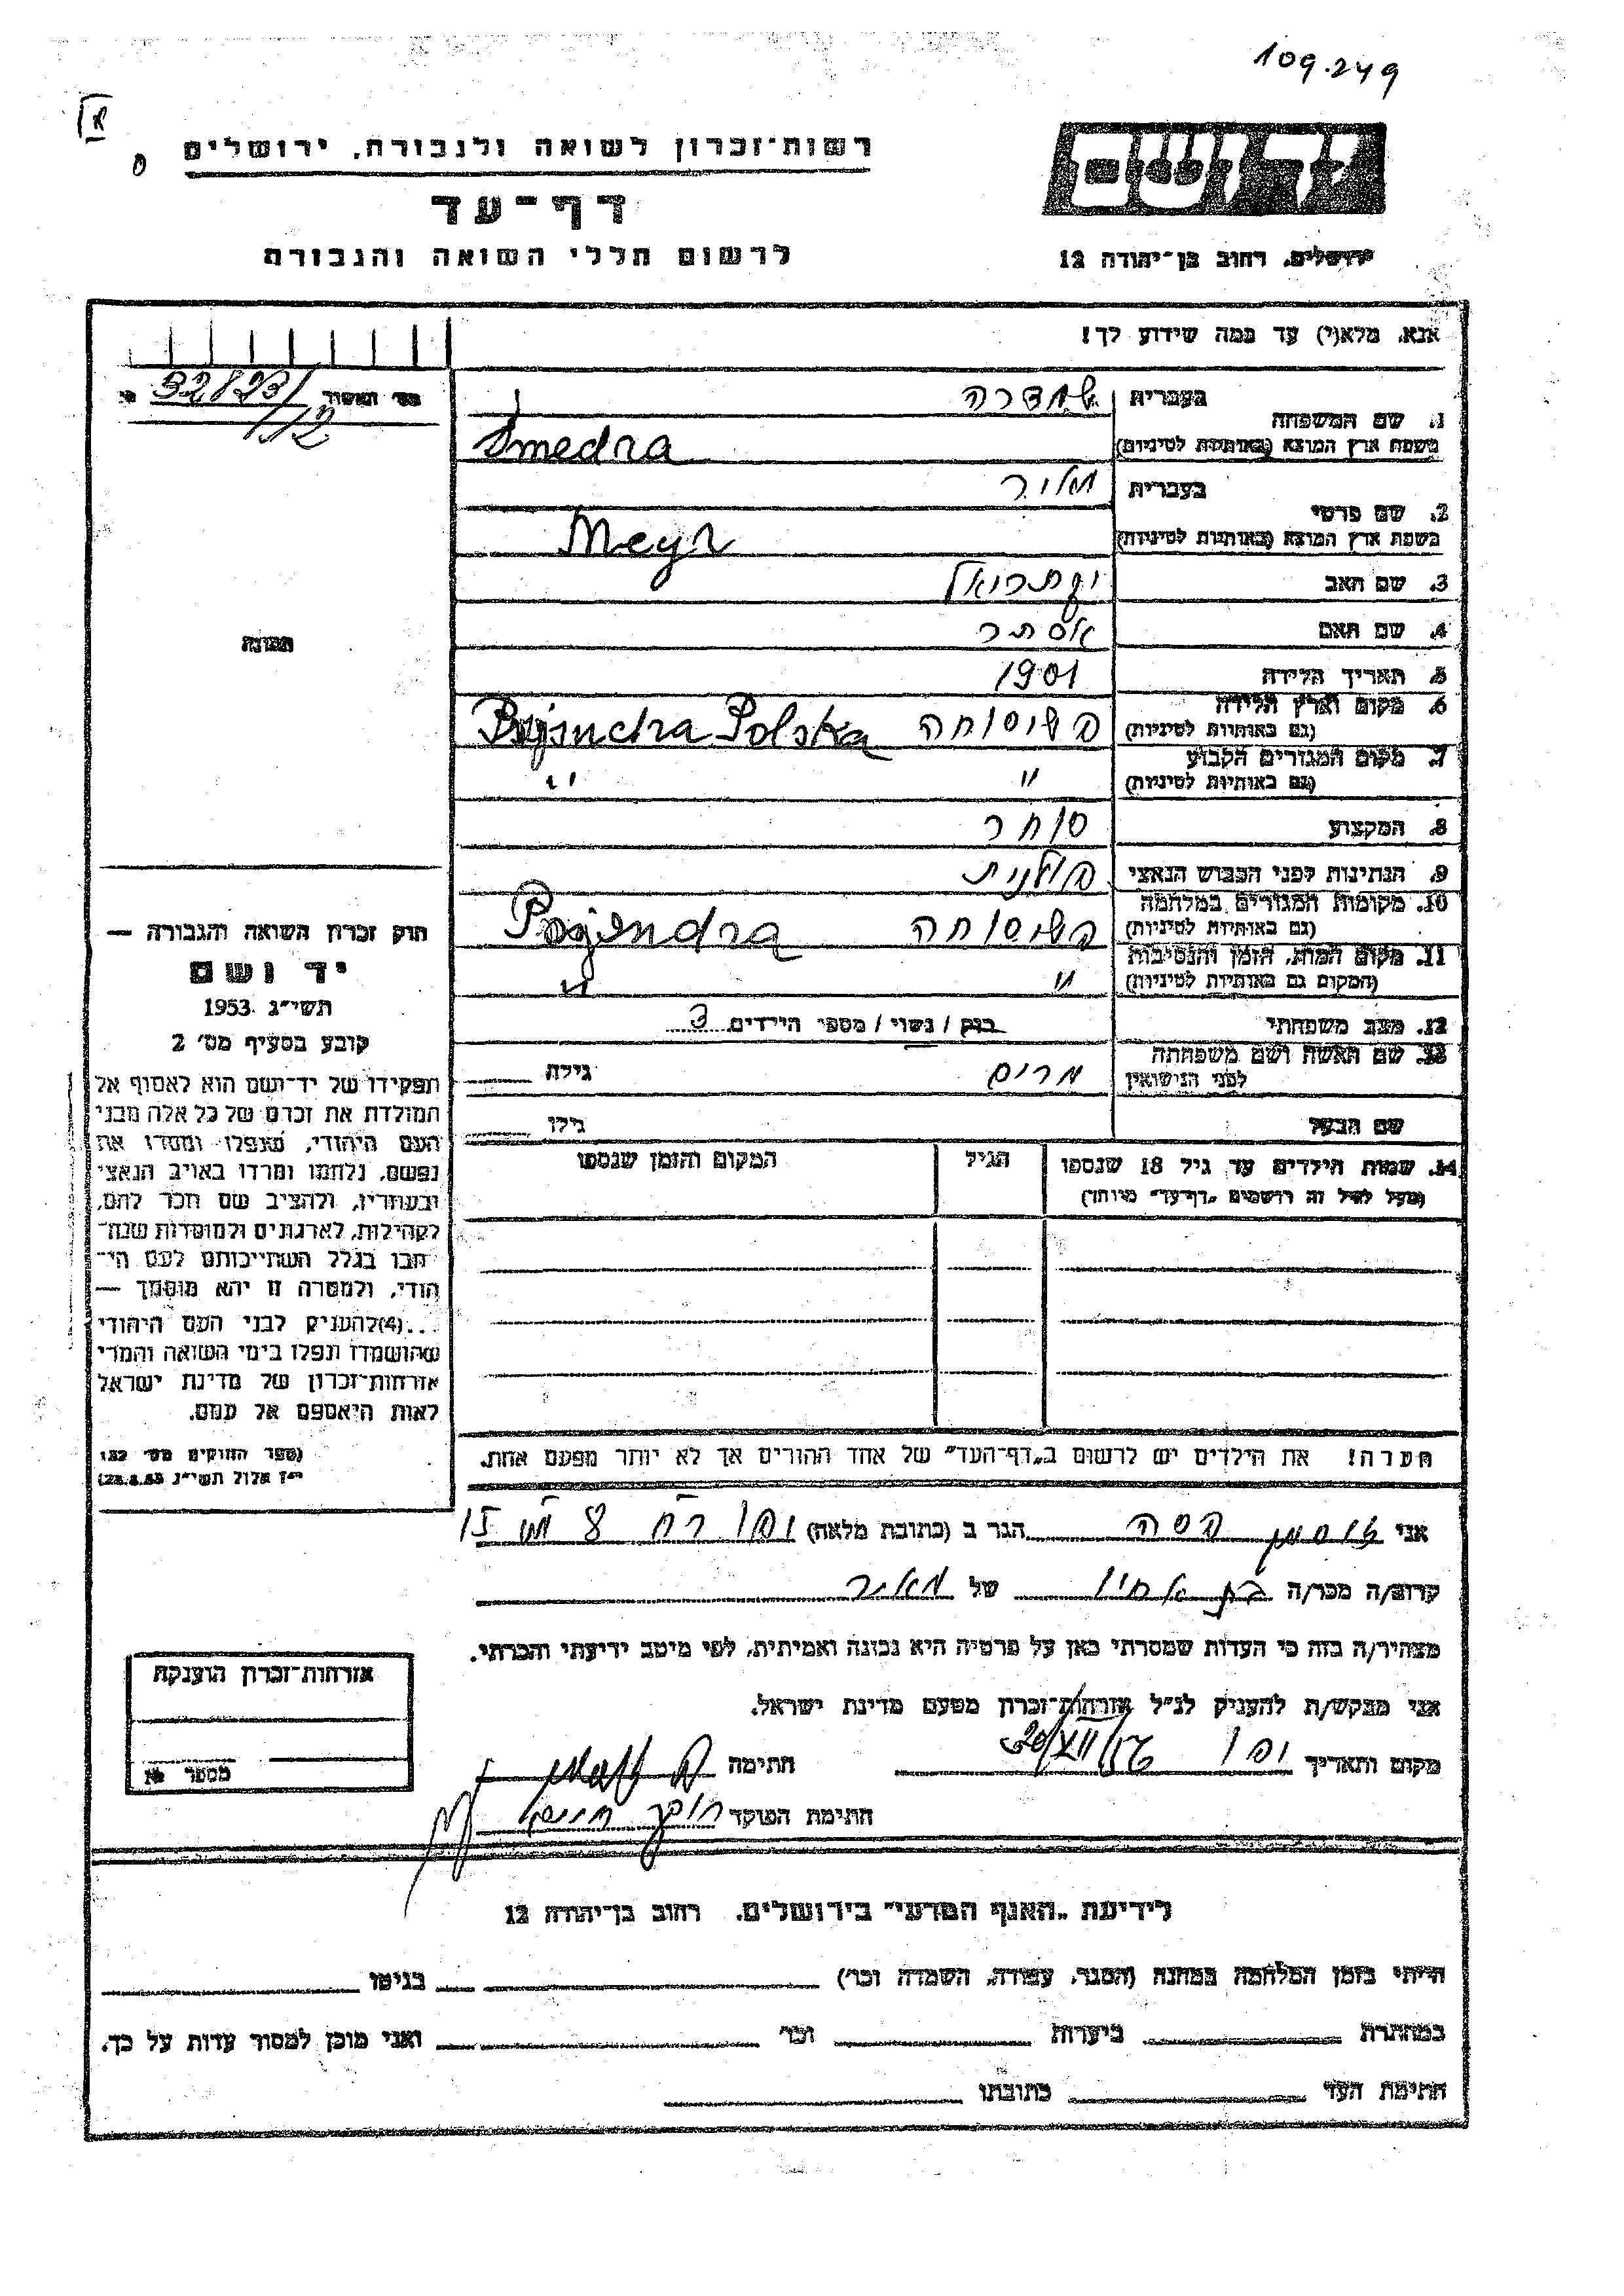 109.249
רשות־זכרון לשואה ולגבורה, ירושלים
יד ושם
דף־עד
לרשום חללי השואה והגבורה
ירושלים, רחוב בן־יהודה 12
אנא, מלא(י) עד כמה שידוע לך!
32823/
112
1. שם המשפחה
בעברית
שמדרה
בשפת ארץ המוצא (באותיות לטיניות)
Smedra
2. שם פרטי
בעברית
מאיר
בשפת ארץ המוצא (באותיות לטיניות)
Meyr
3. שם האב
ירחמיאל
4. שם האם
אסתר
5. תאריך הלידה
1901
6. מקום וארץ הלידה
(גם באותיות לטיניות)
פשיסוחה Polska
7. מקום המגורים הקבוע
(גם באותיות לטיניות)
" "
8. המקצוע
סוחר
9. הנתינות לפני הכבוש הנאצי
פולנית
10. מקומות המגורים במלחמה
(גם באותיות לטיניות)
פשיסוחה
11. מקום המות, הזמן והנסיבות
(המקום גם באותיות לטיניות)
" "
12. מצב משפחתי
רווק / נשוי / מספר הילדים 3
13. שם האשה ושם משפחתה
לפני הנישואין
מרים
גילה
שם הבעל
גילו
14. שמות הילדים עד גיל 18 שנספו
(מעל לגיל זה רושמים "דף־עד" מיוחד)
הגיל
המקום והזמן שנספו
הערה! את הילדים יש לרשום ב"דף־העד" של אחד ההורים אך לא יותר מפעם אחת.
תמונה
חוק זכרון השואה והגבורה —
יד ושם
תשי"ג 1953
קובע בסעיף מס' 2
תפקידו של יד־ושם הוא לאסוף אל
המולדת את זכרם של כל אלה מבני
העם היהודי, שנפלו ומסרו את
נפשם, נלחמו ומרדו באויב הנאצי
ובעוזריו, ולהציב שם וזכר להם,
לקהילות, לארגונים ולמוסדות שנח־
רבו בגלל השתייכותם לעם הי־
הודי, ולמטרה זו יהא מוסמך —
...(4) להעניק לבני העם היהודי
שהושמדו ונפלו בימי השואה והמרי
אזרחות־זכרון של מדינת ישראל
לאות היאספם אל עמם.
(ספר החוקים מס' 132
י"ז אלול תשי"ג 28.8.53)
אני זוסמן פסה הגר ב (כתובת מלאה) יפו רח 8
קרוב/ה מכר/ה בת אחיו של מאיר
מצהיר/ה בזה כי העדות שמסרתי כאן על פרטיה היא נכונה ואמיתית, לפי מיטב ידיעתי והכרתי.
אני מבקש/ת להעניק לנ"ל אזרחות־זכרון מטעם מדינת ישראל.
מקום ותאריך יפו 20/XII/56 חתימה
חתימת הפוקד
אזרחות־זכרון הוענקה
מספר
לידיעת "האגף המדעי" בירושלים, רחוב בן־יהודה 12
הייתי בזמן המלחמה במחנה (הסגר, עבודה, השמדה וכו') בגיטו
במחתרת ביערות וכו' ואני מוכן למסור עדות על כך.
חתימת העד כתובתו